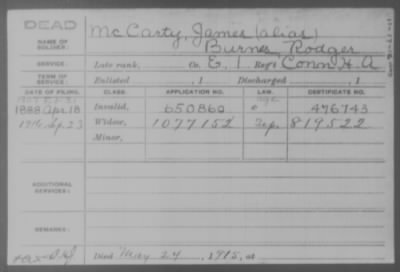 DEAD
McCarty, James (alias)
NAME OF SOLDIER:
Burns, Rodger
SERVICE:
Late rank, Co. E, 1 Reg't Conn. H.A.
TERM OF SERVICE:
Enlisted , 1 Discharged , 1
DATE OF FILING. CLASS. APPLICATION NO. LAW. CERTIFICATE NO.
1888 Apr. 18 Invalid, 650860 476743
1916, Sep. 23 Widow, 1077152 819522
Minor,
ADDITIONAL SERVICES:
REMARKS:
Died May 24, 1915, at